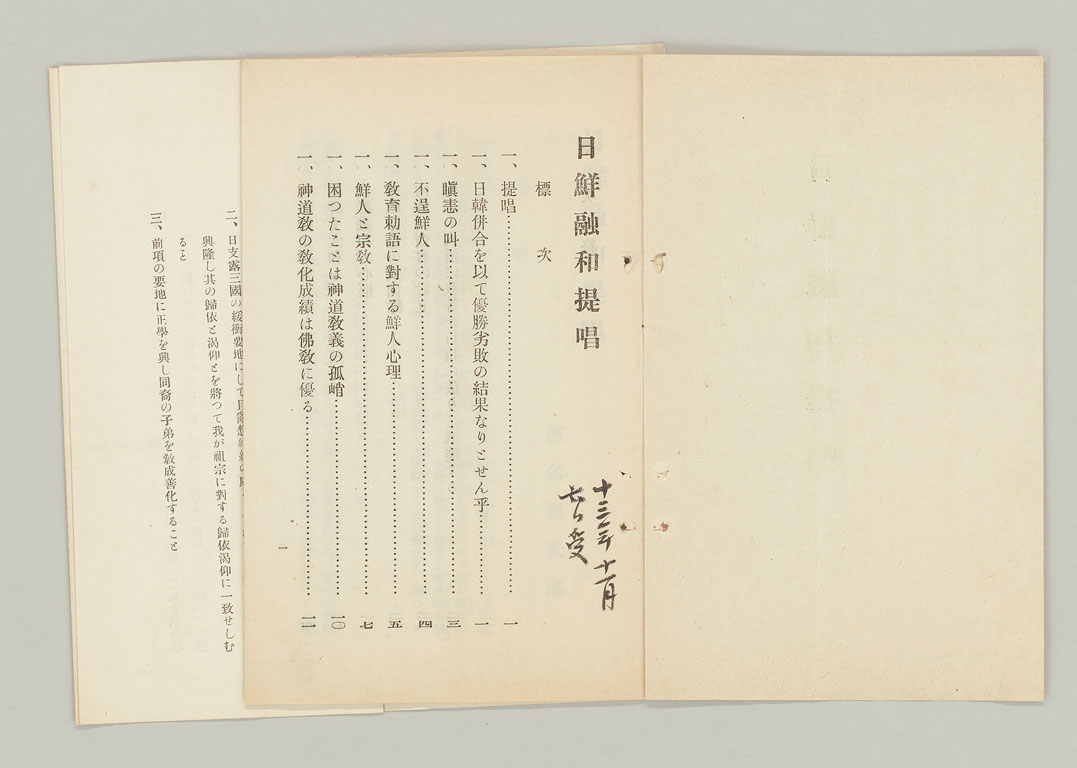 日鮮融和提唱
標次
一、提唱……一
一、日韓併合を以て優勝劣敗の結果なりとせん乎……一
一、瞋恚の叫……三
一、不逞鮮人……四
一、敎育勅語に對する鮮人心理……五
一、鮮人と宗敎……七
一、困つたことは神道敎義の孤峭……一〇
一、神道敎の敎化成績は佛敎に優る……一一
一
十三年十一月
受
二、日支露三國の緩衝要地にして
興隆し其の歸依と渴仰とを將つて我が祖宗に對する歸依渴仰に一致せしむ
ること
三、前項の要地に正學を興し同裔の子弟を敎成善化すること